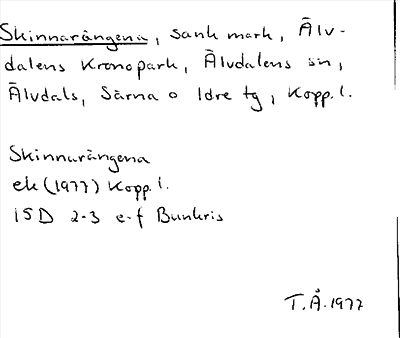 Skinnarängena, sank mark, Älv-
dalens Kronopark, Älvdalens sn,
Älvdals, Särna o Idre tg, Kopp. l.
Skinnarängena
ek (1977) Kopp. l.
15D 2-3 e-f Bunkris
T.Å. 1977